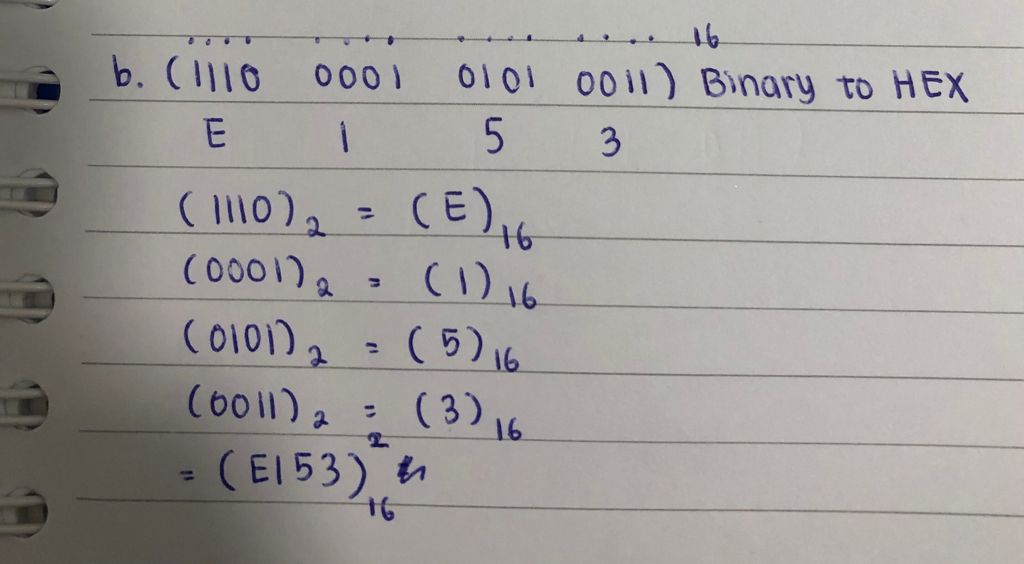 .... .... .... .... 16
b. (1110 0001 0101 0011) Binary to HEX
E 1 5 3
(1110)₂ = (E)₁₆
(0001)₂ = (1)₁₆
(0101)₂ = (5)₁₆
(0011)₂ = (3)₁₆
= (E153)₁₆